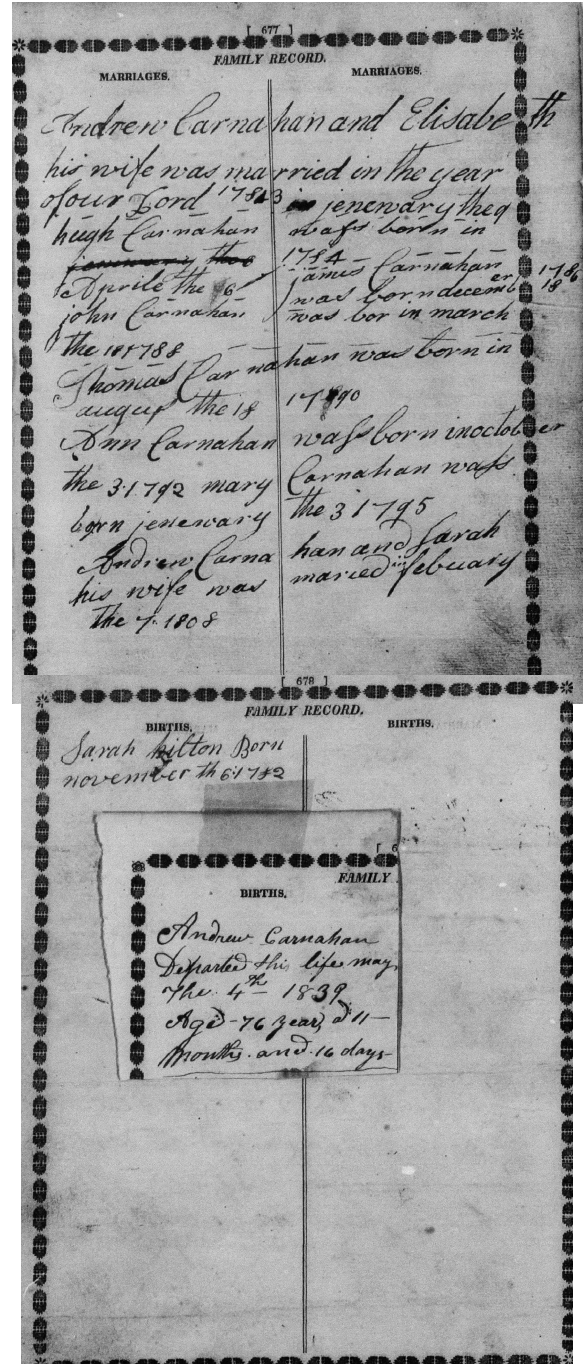 [ 677 ]
FAMILY RECORD.
MARRIAGES. MARRIAGES.
Andrew Carnahan and Elisabeth
his wife was married in the year
of our Lord 1783 jenewary the 9
hugh Carnahan wass born in
Aprile the 6 1784
james Carnahan
was born december 18 1786
john Carnahan was bor in march
the 18 1788
Thomas Carnahan was born in
augus the 18 1790
Ann Carnahan wass born in october
the 3 1792 mary Carnahan wass
born jenewary the 3 1795
Andrew Carnahan and Sarah
his wife was maried in febuary
the 7 1808
[ 678 ]
FAMILY RECORD.
BIRTHS. BIRTHS.
Sarah hilton Born
november th 6 1782
[ 6
FAMILY
BIRTHS.
Andrew Carnahan
Departed this life may
The 4th 1839
Aged 76 years 11
Months and 16 days